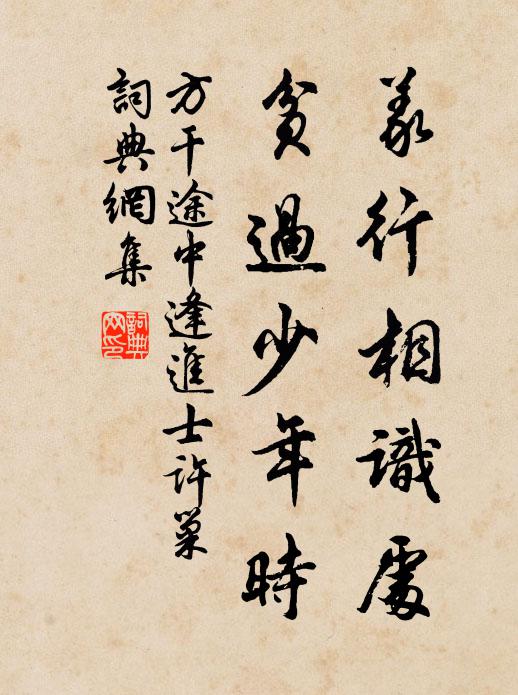 義行相識處
貧過少年時
方干途中逢進士許巢
詞典網集
詞典網印